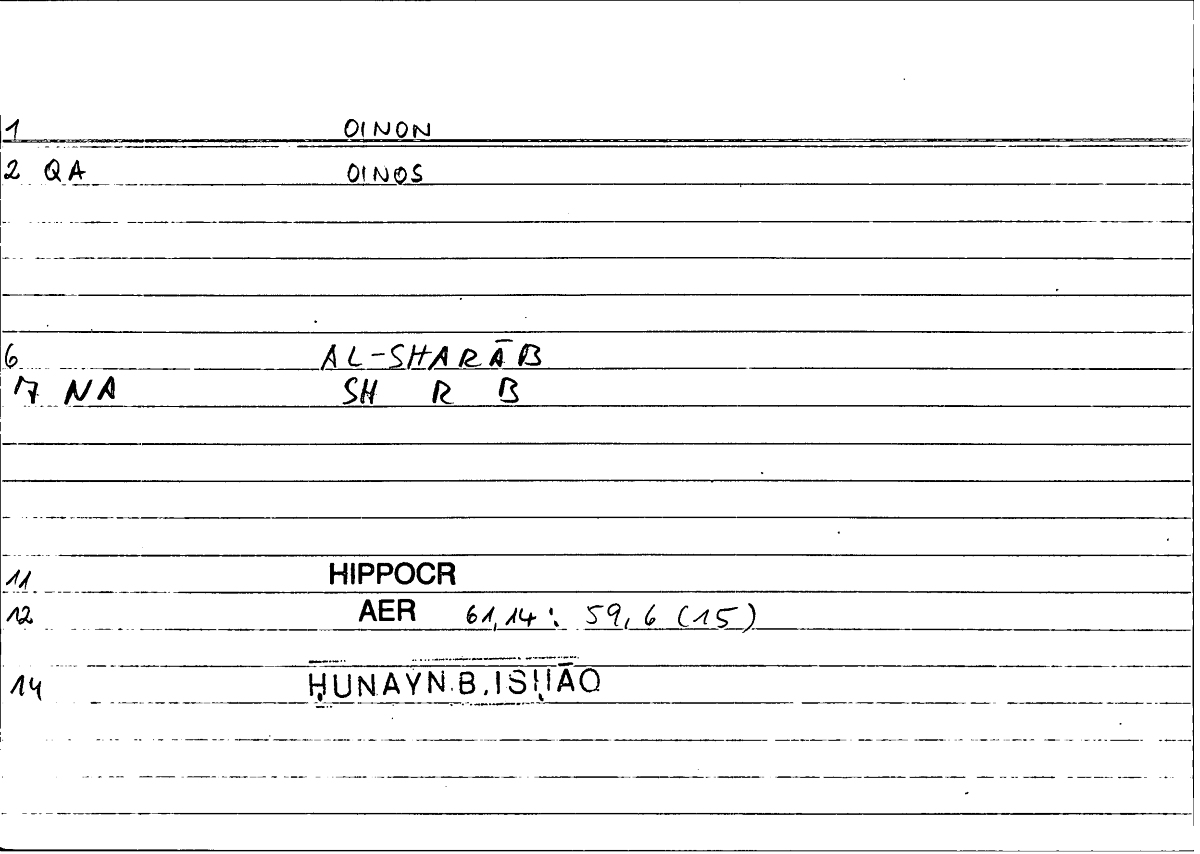 1 OINON
2 QA OINOS
6 AL-SHARĀB
7 NA SH R B
11 HIPPOCR
12 AER 61,14: 59,6 (15)
14 ḤUNAYN.B.ISḤĀQ